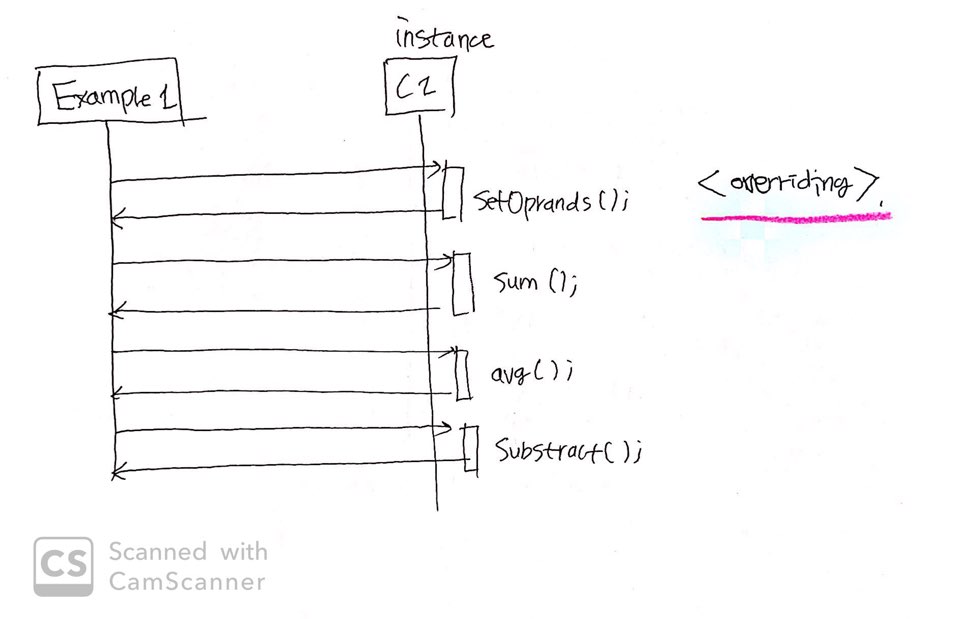 instance
Example 1
C1
SetOprands();
<overriding>.
sum();
avg();
Substract();
CS Scanned with
CamScanner